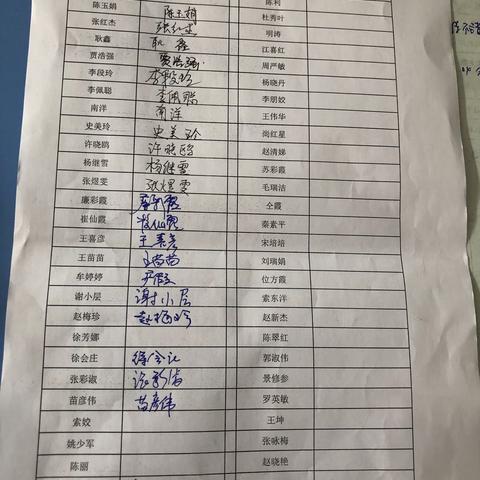 陈玉娟 陈玉娟 陈利
张红杰 张红杰 杜秀叶
耿鑫 耿鑫 明涛
贾浩强 贾浩强 江喜红
李段玲 李段玲 周严敏
李佩聪 李佩聪 杨晓丹
南洋 南洋 李朋姣
史美玲 史美玲 王伟华
许晓鸥 许晓鸥 尚红星
杨继雪 杨继雪 赵清娣
张煜雯 张煜雯 苏彩霞
廉彩霞 毛瑞洁
崔仙霞 崔仙霞 仝霞
王喜彦 王喜彦 秦素平
王苗苗 王苗苗 宋培培
牟婷婷 刘瑞娟
谢小层 谢小层 位方霞
赵梅珍 赵梅珍 索东洋
徐芳娜 赵新杰
徐会庄 陈翠红
张彩淑 郭淑伟
苗彦伟 苗彦伟 景修参
索姣 罗英敏
姚少军 王坤
陈丽 张咏梅
赵晓艳